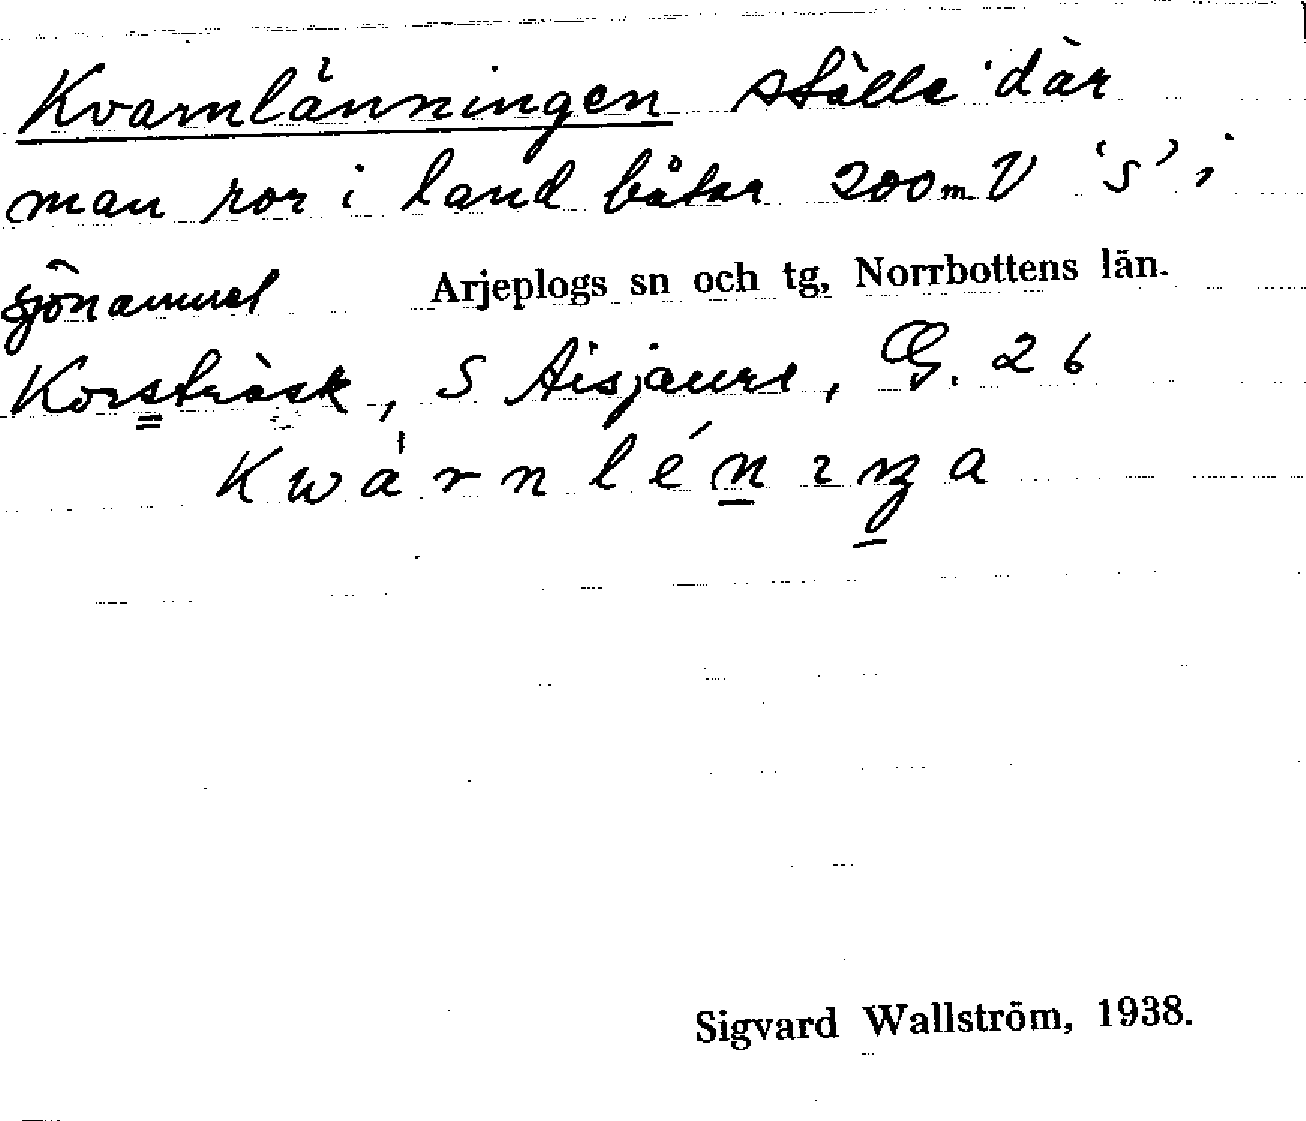 Kvarnlänningen ställe där
man ror i land båtar 200 m V 'S' i
sjönamnet Arjeplogs sn och tg, Norrbottens län.
Korsträsk, S Aisjaure, G. 26
Kwárnlénıŋa
Sigvard Wallström, 1938.